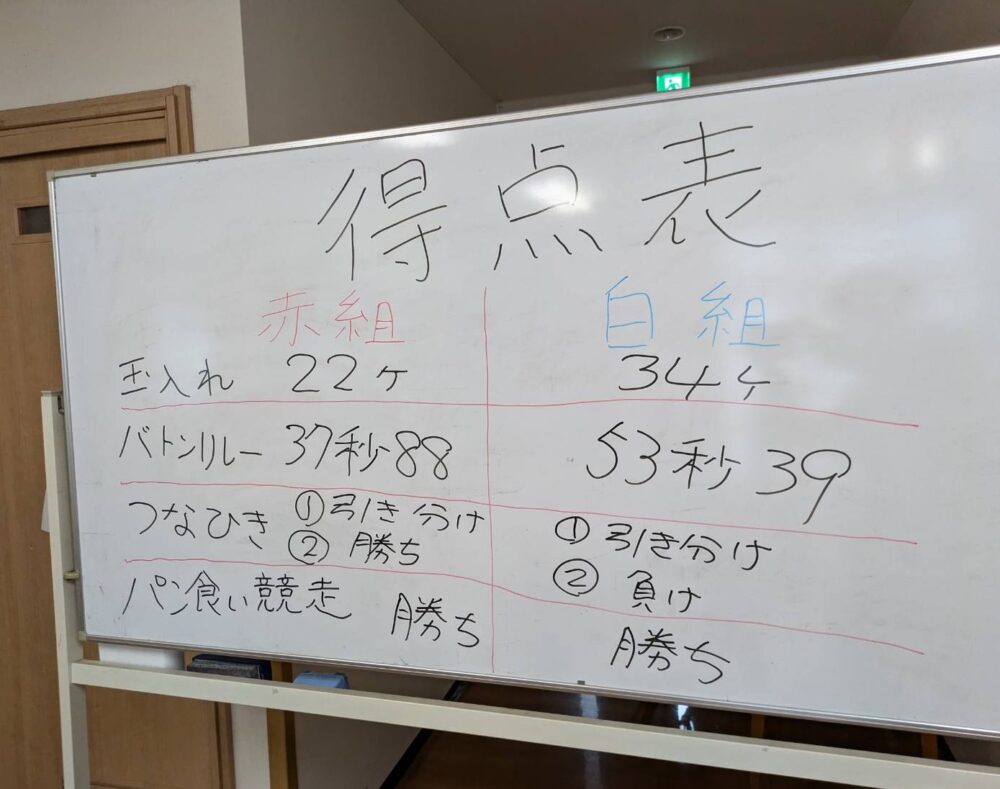 得点表
赤組 白組
玉入れ 22ヶ 34ヶ
バトンリレー 37秒88 53秒39
つなひき ①引き分け ①引き分け
②勝ち ②負け
パン食い競走 勝ち 勝ち